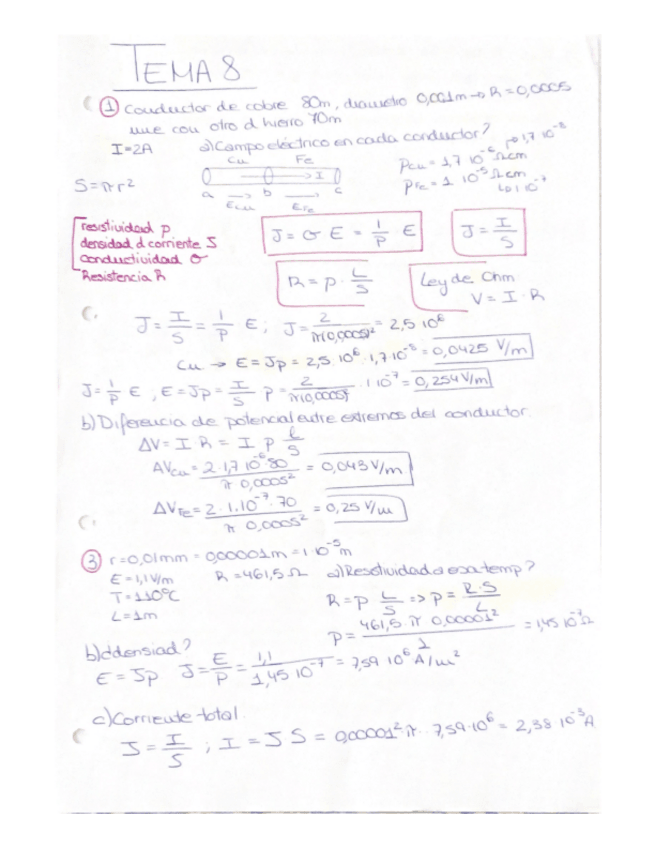 TEMA 8
① Conductor de cobre 80m, diametro 0,001m → R = 0,0005
une con otro d hierro 70m
I=2A a) Campo eléctrico en cada conductor? ↳ 1,7 10⁻⁸
Cu Fe ρcu = 1,7 10⁻⁶ Ωcm
I ρFe = 1 10⁻⁵ Ωcm
S = πr² a b c ↳ 1 10⁻⁷
Ecu EFe
resistividad ρ
densidad d corriente J
Conductividad σ
Resistencia R
J = σ E = 1/ρ E
J = I/S
R = ρ · L/S
Ley de Ohm
V = I · R
J = I/S = 1/ρ E ; J = 2/π(0,0005)² = 2,5 10⁶
Cu → E = Jρ = 2,5 · 10⁶ · 1,7 · 10⁻⁸ = 0,0425 V/m
J = 1/ρ E , E = Jρ = I/S ρ = 2/π(0,0005)² · 1 10⁻⁷ = 0,254 V/m
b) Diferencia de potencial entre extremos del conductor
ΔV = I R = I ρ l/S
ΔVcu = 2 · 1,7 10⁻⁸ · 80 / π 0,0005² = 0,043 V/m
ΔVFe = 2 · 1 · 10⁻⁷ · 70 / π 0,0005² = 0,25 V/m
③ r = 0,01mm = 0,00001m = 1 · 10⁻⁵ m
E = 1,1 V/m R = 461,5 Ω a) Resistividad a esa temp?
T = 110ºC R = ρ L/S => ρ = R·S/L
L = 1m
ρ = 461,5 π 0,00001² / 1 = 1,45 10⁻⁷ Ω
b) ddensiad?
E = Jρ J = E/ρ = 1,1 / 1,45 10⁻⁷ = 7,59 10⁶ A/m²
c) Corriente total
J = I/S ; I = J S = 0,00001² π · 7,59 · 10⁶ = 2,38 10⁻³ A